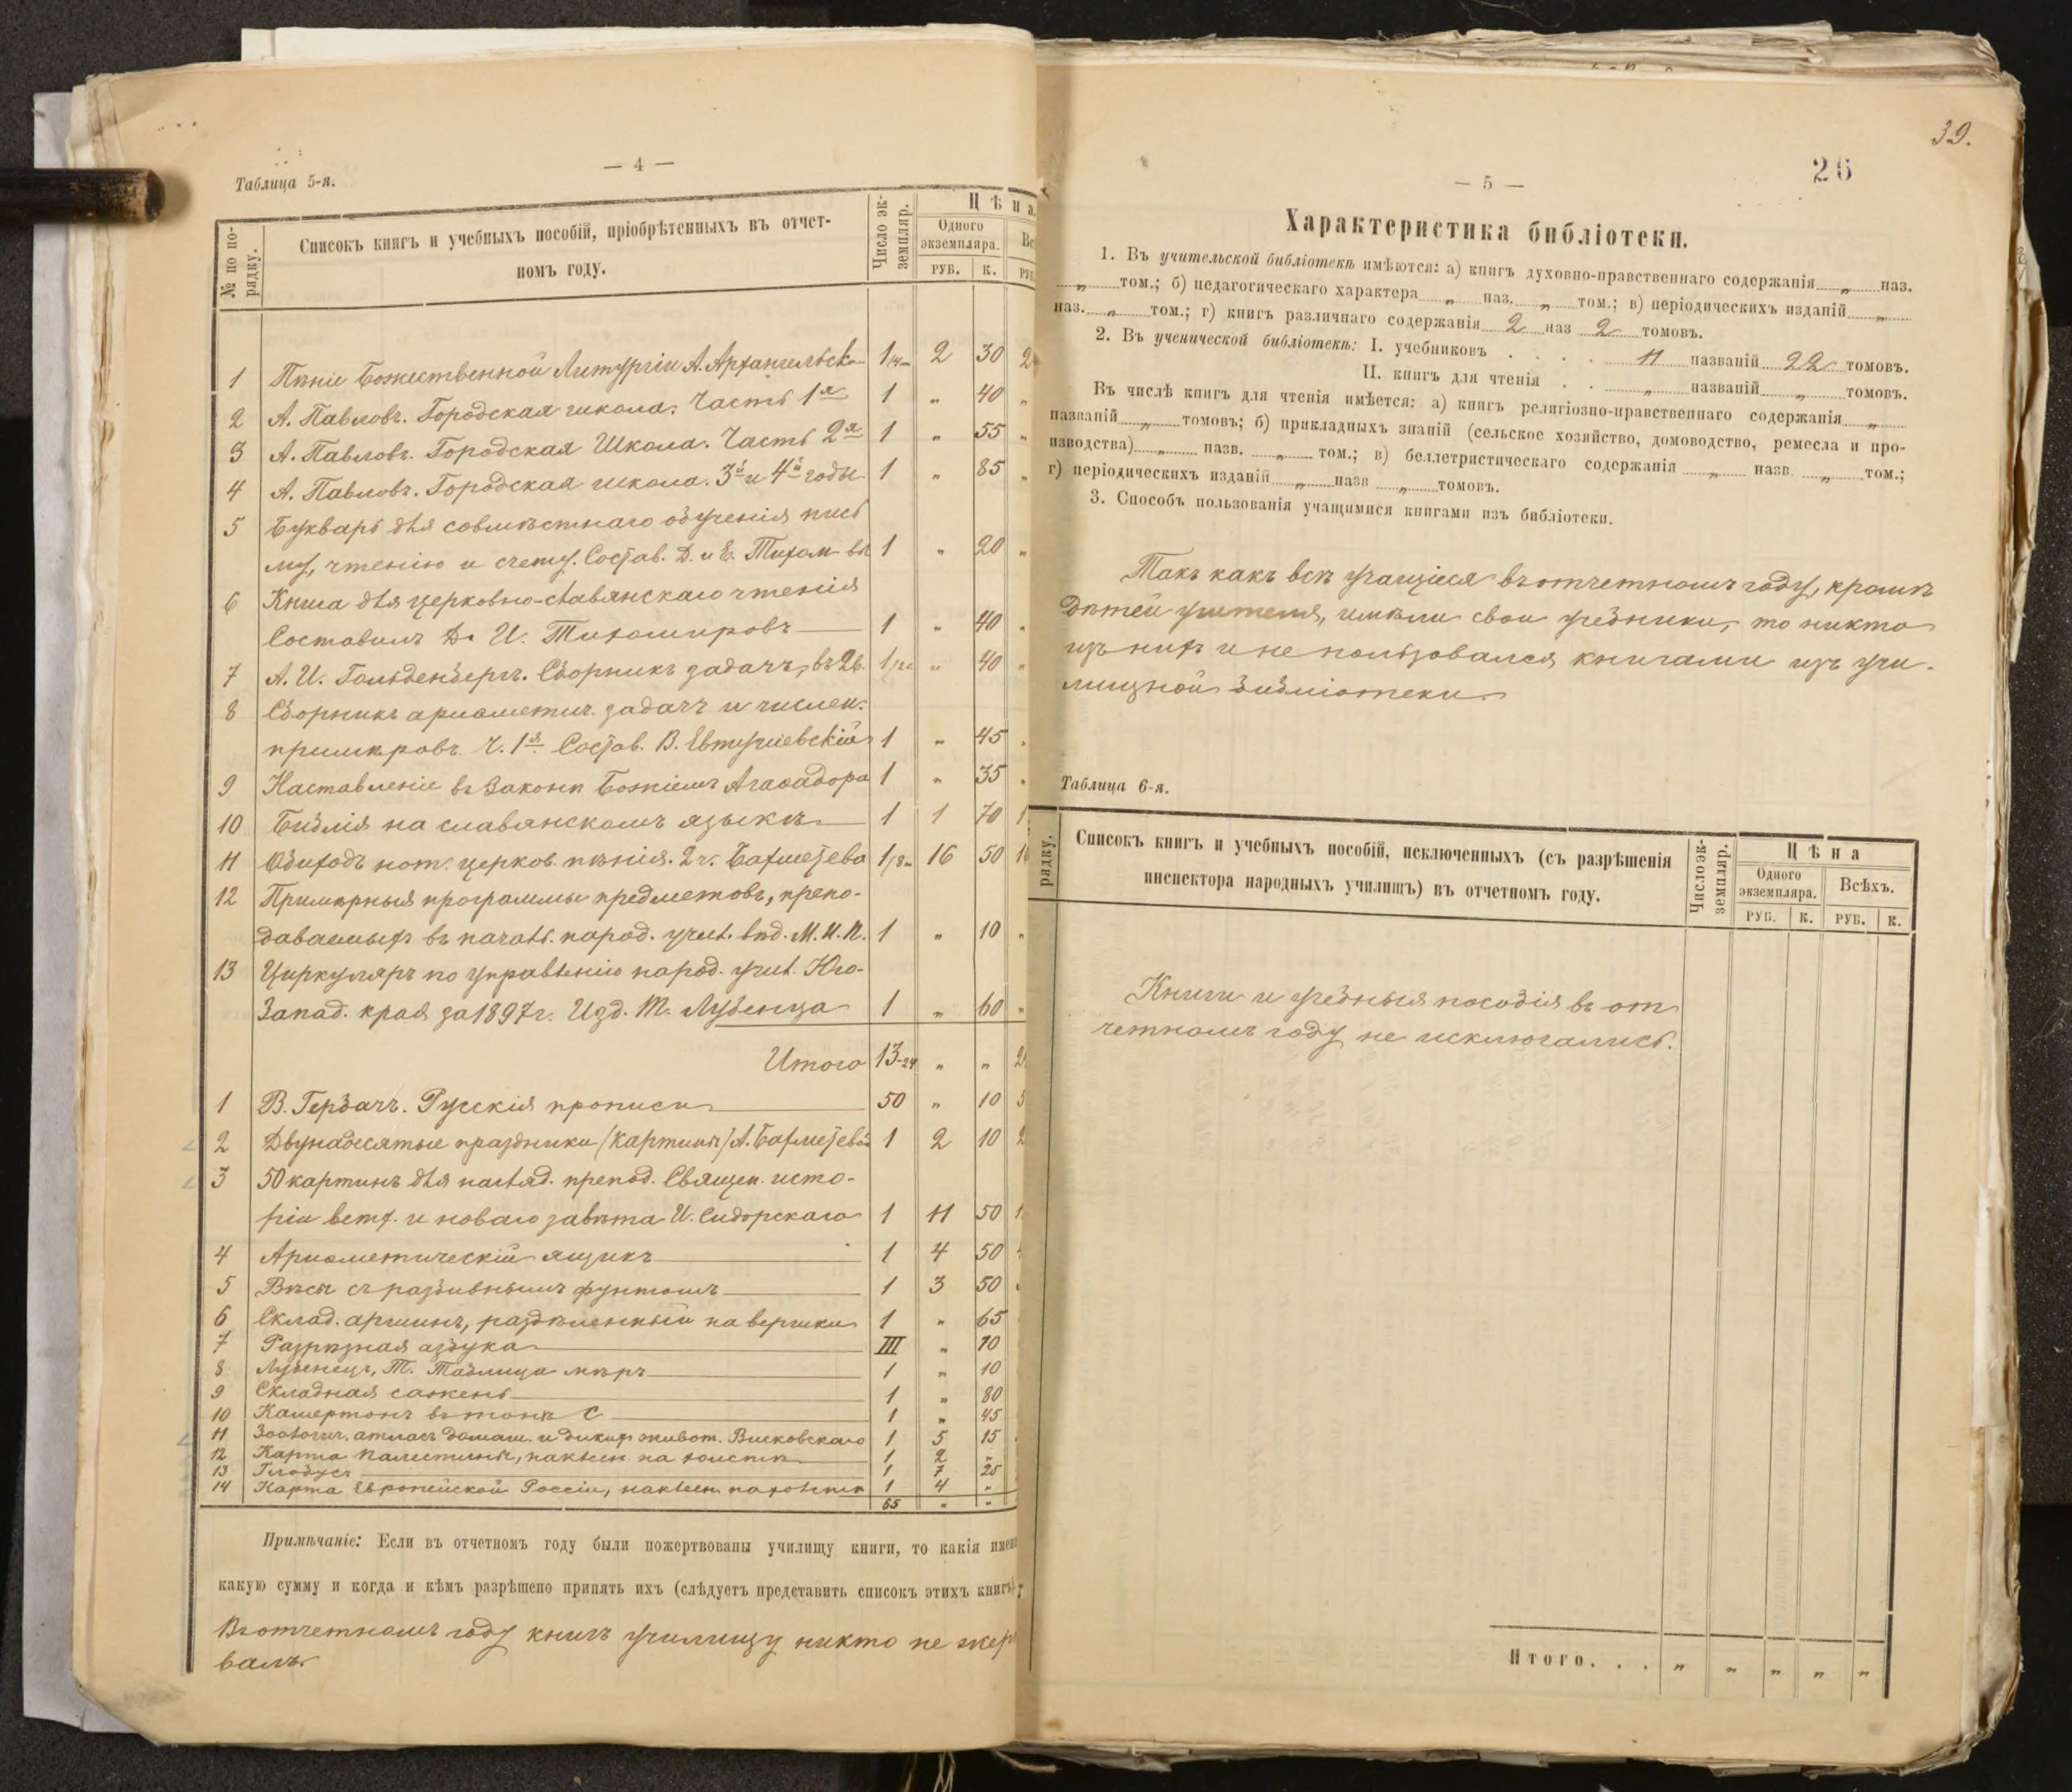 — 4 —
Таблица 5-я.
№ по по-
рядку.
Списокъ книгъ и учебныхъ пособій, пріобрѣтенныхъ въ отчет-
номъ году.
Число эк-
земпляр.
Цѣна.
Одного
экземпляра.
РУБ. К. РУБ
1 Пѣніе Божественной Литургіи А. Архангельск 1 2 30 2
2 А. Павловъ. Городская школа. Часть 1я 1 „ 40 „
3 А. Павловъ. Городская Школа. Часть 2я 1 „ 55 „
4 А. Павловъ. Городская школа. 3й и 4й годы 1 „ 85 „
5 Букварь для совмѣстнаго обученія пись
му, чтенію и счету. Состав. Д. и Е. Тихом-вы 1 „ 20 „
6 Книга для церковно-славянскаго чтенія
Составилъ Д. И. Тихомировъ 1 „ 40 „
7 А. И. Гольденбергъ. Сборникъ задачъ, въ 2в. 1/2 „ 40 „
8 Сборникъ ариѳметич. задачъ и числен.
примѣровъ. Ч. 1я. Состав. В. Евтушевскій 1 „ 45 „
9 Наставленіе въ Законѣ Божіемъ Агаѳодора 1 „ 35 „
10 Библія на славянскомъ языкѣ 1 1 70 1
11 Обиходъ нот. церков. пѣнія. 2 ч. Бахметева 1/8 16 50 16
12 Примѣрныя программы предметовъ, препо-
даваемыхъ въ начал. народ. учил. вѣд. М. Н. П. 1 „ 10 „
13 Циркуляръ по управленію народ. учил. Юго-
Запад. края за 1897 г. Изд. Т. Лубенца 1 „ 60 „
Итого 13-24 „ „ 2
1 В. Гербачъ. Русскія прописи 50 „ 10 5
2 Двунадесятые праздники (картины) А. Бахметевой 1 2 10 2
3 50 картинъ для нагляд. препод. Священ. исто-
ріи ветх. и новаго завѣта И. Сидорскаго 1 11 50 1
4 Ариѳметическій ящикъ 1 4 50 4
5 Вѣсы съ разбивнымъ фунтомъ 1 3 50
6 Склад. аршинъ, раздѣленный на вершки 1 „ 65
7 Разрѣзная азбука III „ 70
8 Лубенецъ, Т. Таблица мѣръ 1 „ 10
9 Складная сажень 1 „ 80
10 Камертонъ въ тонѣ С 1 „ 45
11 Зоологич. атласъ домаш. и дикихъ живот. Висковскаго 1 5 15
12 Карта Палестины, наклеен. на холстѣ 1 2 „
13 Глобусъ 1 7 25
14 Карта Европейской Россіи, наклеен. на холстѣ 1 4 „
65 „ „
Примѣчаніе: Если въ отчетномъ году были пожертвованы училищу книги, то какія имен
какую сумму и когда и кѣмъ разрѣшено принять ихъ (слѣдуетъ представить списокъ этихъ книгъ)
Въ отчетномъ году книгъ училищу никто не жер
валъ.
39.
26
— 5 —
Характеристика библіотеки.
1. Въ учительской библіотекѣ имѣются: а) книгъ духовно-нравственнаго содержанія „ наз.
„ том.; б) педагогическаго характера „ наз. „ том.; в) періодическихъ изданій „
наз. „ том.; г) книгъ различнаго содержанія 2 наз 2 томовъ.
2. Въ ученической библіотекѣ: I. учебниковъ . . . . 11 названій 22 томовъ.
II. книгъ для чтенія . . „ названій „ томовъ.
Въ числѣ книгъ для чтенія имѣется: а) книгъ религіозно-нравственнаго содержанія „
названій „ томовъ; б) прикладныхъ знаній (сельское хозяйство, домоводство, ремесла и про-
изводства) „ назв. „ том.; в) беллетристическаго содержанія „ назв. „ том.;
г) періодическихъ изданій „ назв „ томовъ.
3. Способъ пользованія учащимися книгами изъ библіотеки.
Такъ какъ всѣ учащіеся въ отчетномъ году, кромѣ
дѣтей учителя, имѣли свои учебники, то никто
изъ нихъ и не пользовался книгами изъ учи-
лищной библіотеки.
Таблица 6-я.
рядку.
Списокъ книгъ и учебныхъ пособій, исключенныхъ (съ разрѣшенія
инспектора народныхъ училищъ) въ отчетномъ году.
Число эк-
земпляр.
Цѣна
Одного
экземпляра.
Всѣхъ.
РУБ. К. РУБ. К.
Книги и учебныя пособія въ от
четномъ году не исключались.
Итого. . . „ „ „ „ „